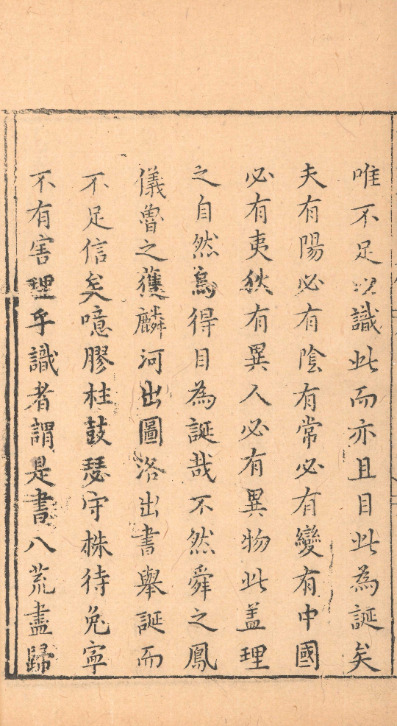 唯不足以識此而亦且目此為誕矣
夫有陽必有陰有常必有變有中國
必有夷狄有異人必有異物此盖理
之自然烏得目為誕哉不然舜之鳳
儀魯之獲麟河出圖洛出書舉誕而
不足信矣噫膠柱鼓瑟守株待兔寧
不有害理乎識者謂是書八荒盡歸